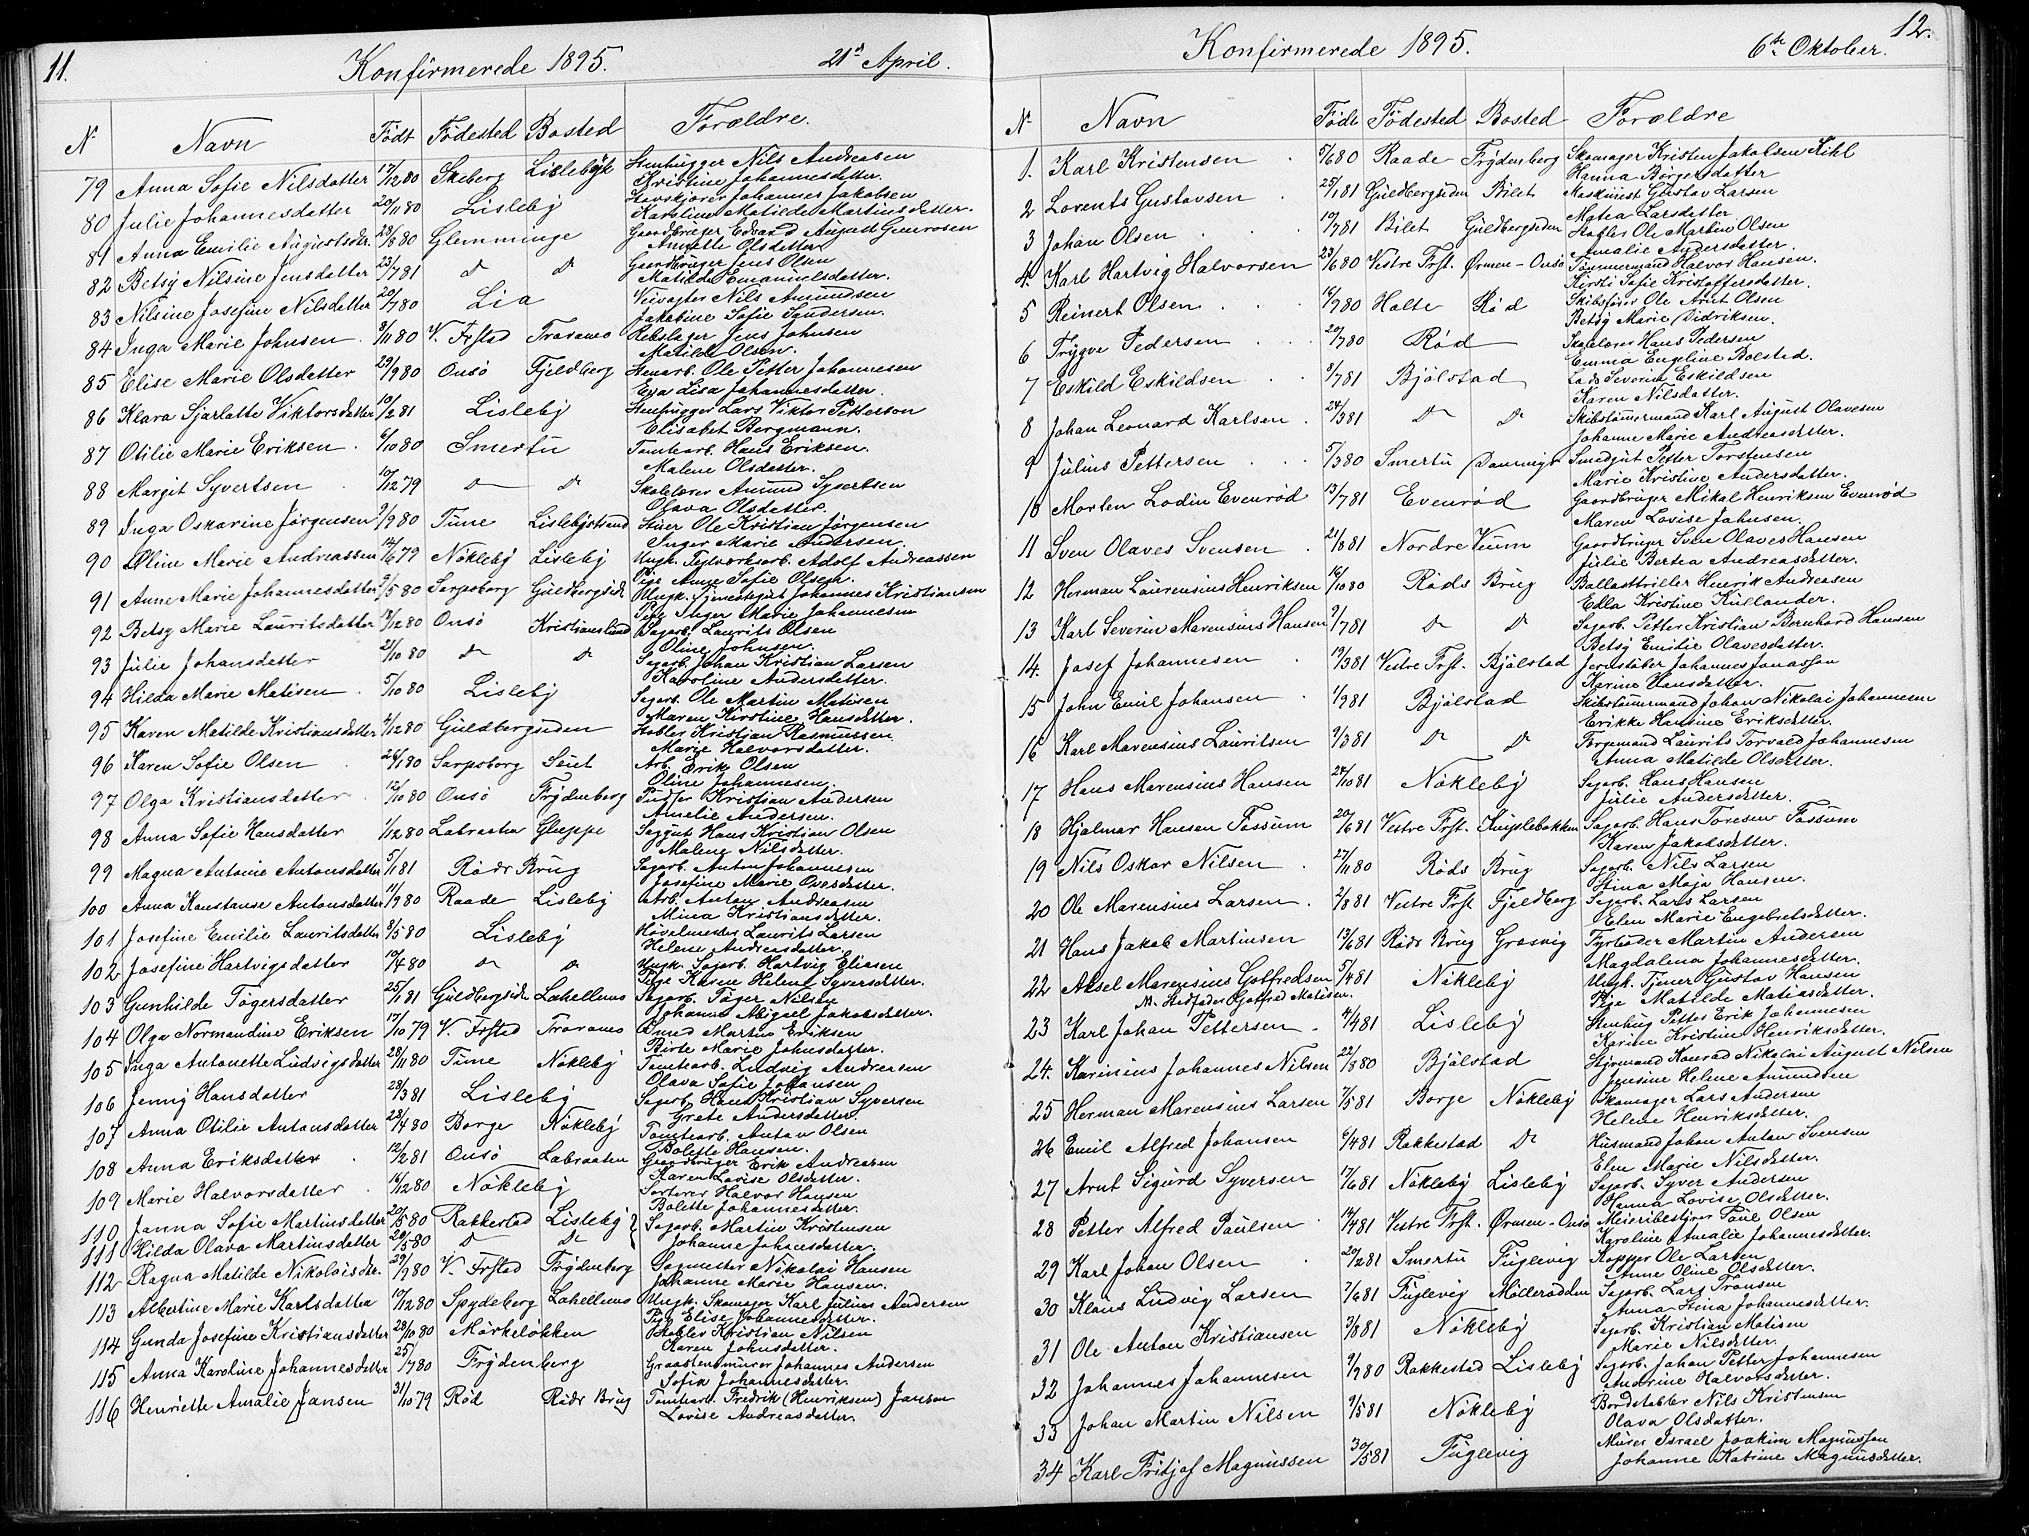 11.
Konfirmerede 1895.
21de April.
N Navn Født Fødested Bosted Forældre.
79 Anna Sofie Nilsdatter 17/12 80 Skeberg Lisleby Stenhugger Nils Andreasen
Kristine Johannesdatter.
80 Julie Johannesdatter 20/11 80 Lisleby Havskjører Johannes Jakobsen
Karoline Matilde Martinusdatter.
81 Anna Emilie Augustsdtr. 28/8 80 Glemminge Gaardbruger Edvard August
Annette Olsdatter
82 Betsy Nilsine Jensdatter 23/7 81 do do Gaardbruger Jens Olsen
Matilde Emanuelsdatter.
83 Nilsine Josefine Nilsdatter 20/7 80 Lia Veivogter Nils Amundsen
Jakobine Sofie Sandersen.
84 Inga Marie Johnsen 9/11 80 V. Frstad Traraneo Rebslager Jens Johnsen
Matilde Olsen.
85 Elise Marie Olsdatter 29/9 80 Onsø Fjeldberg Stenarb. Ole Petter Johannesen
Eva Lisa Johannesdatter.
86 Klara Sjarlatte Viktorsdatter 10/2 81 Lisleby Stenhugger Lars Viktor Petterson
Elisabet Bergmann.
87 Otilie Marie Eriksen 6/10 80 Smertu Tomtearb. Hans Eriksen.
Malene Olsdatter.
88 Margit Syvertsen 10/12 79 do do Skolelærer Amund Syvertsen
Olava Olsdatter.
89 Inga Oskarine Jørgensen 9/9 80 Tune Lislebystrand Stuer Ole Kristian Jørgensen
Inger Marie Andersen.
90 Oline Marie Andreassen 12/6 79 Nøkleby Lisleby Ungk. Teglverksarb. Adolf Andreassen
Pige Anne Sofie Olsen.
91 Anne Marie Johannesdatter 9/5 80 Sarpsborg Guldbergsid. Ungk. Tjenestegut Johannes Kristiansen
Pige Inger Marie Johannesen
92 Betsy Marie Lauritsdatter 18/12 80 Onsø Kristianslund Sagarb. Laurits Olsen
Oline Johnsen.
93 Julie Johansdatter 21/10 80 do do Sagarb. Johan Kristian Larsen
Karoline Andersdatter.
94 Hilda Marie Matisen 5/10 80 Lisleby Sagarb. Ole Martin Matisen
Maren Kirstine Hansdatter.
95 Karen Matilde Kristiansdatter 4/12 80 Guldbergsiden Stabler Kristian Rasmussen
Marie Halvorsdatter.
96 Karen Sofie Olsen 24/1 80 Sarpsborg Suet Arb. Erik Olsen
Oline Johannesen.
97 Olga Kristiansdatter 12/10 80 Onsø Frydenberg Pudser Kristian Andersen
Amelie Andersen.
98 Anna Sofie Hansdatter 1/12 80 Labraaten Gleppe Saggut Hans Kristian Olsen
Malene Nilsdatter.
99 Magna Antonie Antonsdatter 5/1 81 Røds Brug Sagarb. Anton Johannesen
Josefine Marie Ovesdatter.
100 Anna Konstanse Antonsdatter 11/9 80 Raade Lisleby Arb. Anton Andreasen
Mina Kristiansdatter.
101 Josefine Emilie Lauritsdatter 9/5 80 Lisleby Høvelmester Laurits Larsen
Helene Andreasdatter.
102 Josefine Hartvigsdatter 10/4 80 do do Ungk. Sagarb. Hartvig Eliasen
Pige Karen Helene Syversdatter.
103 Gunhilde Tøgersdatter 25/1 81 Guldbergsid. Lahellemo Sagarb. Tøger Nilsen
Johanne Abigael Jakobsdatter.
104 Olga Normandine Eriksen 17/10 79 V. Frstad Traraneo Martin Eriksen
Birte Marie Johnsdatter.
105 Inga Antonette Ludvigsdatter 28/11 80 Tune Nøkleby Tomtearb. Ludvig Andersen
Olava Sofie Johansen
106 Jenny Hansdatter 23/3 81 Lisleby Sagarb. Hans Kristian Syversen
Grete Andersdatter.
107 Anna Otilie Antonsdatter 28/4 80 Borge Nøkleby Tomtearb. Anton Olsen
Bolette Hansen.
108 Anna Eriksdatter 12/2 81 Onsø Labraaten Gaardbruger Erik Andreasen
Karen Lovise Olsdatter.
109 Marie Halvorsdatter 16/12 80 Nøkleby Sorterer Halvor Hansen
Bolette Johannesdatter.
110 Janna Sofie Martinsdatter 20/5 80 Rakkestad Lisleby } Sagarb. Martin Kristensen
111 Hilda Olava Martinsdatter 20/5 80 do do Johanne Johansdatter.
112 Ragna Matilde Nikolaisdtr. 29/9 80 V. Frstad Frydenberg Sagmester Nikolai Hansen
Johanne Marie Hansen.
113 Albertine Marie Karlsdatter 10/12 80 Spydeberg Lahellemo Ungk. Skomager Karl Julius Andersen
Pige Elise Johannesdatter.
114 Gunda Josefine Kristiansdatter 28/10 80 Mørkeløkken Stabler Kristian Nilsen
Karen Johnsdatter.
115 Anna Karoline Johannesdatter 25/7 80 Frydenberg Graastensmurer Johannes Andersen
Sofia Johannesdatter.
116 Henriette Amalie Jansen 31/10 79 Rød Røds Brug Tomtearb. Fredrik (Henriksen) Jansen
Lovise Andreasdatter.
12.
Konfirmerede 1895.
6te Oktober.
N Navn Født Fødested Bosted Forældre
1. Karl Kristensen 5/6 80 Raade Frydenberg Skomager Kristen Jakobsen Kihl
Hanna Børgersdatter
2 Lorents Gustavsen 25/1 81 Guldbergsiden Bilet Maskinist Gustav Larsen
Matea Larsdatter
3 Johan Olsen 19/7 81 Bilet Guldbergsiden Stabler Ole Martin Olsen
Amalie Andersdatter.
4. Karl Hartvig Halvorsen 23/6 80 Vestre Frst. Ørmen - Onsø Tømmermand Halvor Hansen.
Kirsti Sofie Kristoffersdatter.
5 Reinert Olsen 16/7 80 Holte Rød Skibsfører Ole Arnt Olsen
Betsy Marie Didriksen.
6 Trygve Pedersen 20/7 80 Rød Skolelærer Hans Pedersen
Emma Engeline Bolstad.
7 Eskild Eskildsen 9/7 81 Bjølstad Lods Severin Eskildsen
Karen Nilsdatter.
8 Johan Leonard Karlsen 24/3 81 do do Skibstømermand Karl August Olavesen
Johanne Marie Andreasdatter.
9 Julius Pettersen 5/3 80 Smertu Smedgut Petter Torstensen
Marie Kristine Andersdatter.
10 Morten Lodin Evenrød 13/7 81 Evenrød Gaardbruger Mikal Henriksen Evenrød
Maren Lovise Johnsen.
11 Sven Olaves Svensen 21/8 81 Nordre Veum Gaardbruger Sven Olaves Hansen
Julie Bertea Andreasdatter.
12 Herman Laurensius Henriksen 16/10 80 Røds Brug Balladtriller Henrik Andreasen
Edla Kristine Kullander.
13 Karl Severin Marensius Hansen 9/7 81 do do Sagarb. Petter Kristian Bernhard Hansen
Betsy Emilie Olavesdatter.
14. Josef Johannesen 19/3 81 Vestre Frst. Bjølstad Jernstøber Johannes Jonassen
Karine Hansdatter.
15 John Emil Johansen 1/9 81 Bjølstad Skibstømermand Johan Nikolai Johannesen
Erikke Hansine Eriksdatter.
16 Karl Marensius Lauritsen 9/3 81 do do Færgemand Laurits Torvald Johannesen
Anna Matilde Olsdatter.
17 Hans Marensius Hansen 24/10 81 Nøkleby Sagarb. Hans Hansen
Julie Andersdatter.
18 Hjalmar Hansen Fossum 20/6 81 Vestre Frst. Knipslebakken Sagarb. Hans Toresen Fossum
Karen Jakobsdatter.
19 Nils Oskar Nilsen 27/11 80 Røds Brug Sagarb. Nils Larsen
Stina Maja Hansen.
20 Ole Marensius Larsen 2/8 81 Vestre Frst Fjeldberg Sagarb. Lars Larsen
Elen Marie Engebretsdatter.
21 Hans Jakob Martinsen 13/6 81 Røds Brug Græsvig Fyrbøder Martin Andersen
Magdalena Johannesdatter.
22 Aksel Marensius Gotfredsen 5/4 81 Nøkleby Ungk. Tjener Gustav Hansen
N. Stedfader Gotfred Matisen. Pige Matilde Matiasdatter.
23 Karl Johan Pettersen 4/4 81 Lisleby Stenhug Petter Erik Johannesen
Karine Kristine Henriksdatter.
24. Karinius Johannes Nilsen 22/1 80 Bjølstad Styrmand Konrad Nikolai August Nilsen
Jensine Helene Amundsen
25 Herman Marensius Larsen 7/5 81 Borge Nøkleby Skomager Lars Andersen
Helene Henriksdatter.
26 Emil Alfred Johansen 6/4 81 Rakkestad do Husmand Johan Anton Svensen
Elen Marie Nilsdatter.
27 Arnt Sigurd Syversen 17/6 81 Nøkleby Lisleby Sagarb. Syver Andersen
Hanna Lovise Olsdatter.
28 Petter Alfred Paulsen 14/4 81 Vestre Frst. Ørmen - Onsø Meieribestyrer Paul Olsen
Karoline Amalie Johannesdatter.
29 Karl Johan Olsen 20/2 81 Smertu Fuglevig Kopper Ole Larsen
Anne Oline Olsdatter.
30 Klaus Ludvig Larsen 7/6 81 Fuglevig Møllerodden Sagarb. Lars Transen
Anna Stina Johannesdatter.
31 Ole Anton Kristiansen 3/8 81 Nøkleby Sagarb. Kristian Matisen
Marie Nilsdatter.
32 Johannes Johannesen 9/9 80 Rakkestad Lisleby Sagarb. Johan Petter Johannesen
Andrine Halvorsdatter.
33 Johan Martin Nilsen 9/5 81 Nøkleby Bordstabler Nils Kristensen
Olava Olsdatter.
34 Karl Fritjof Magnussen 30/5 81 Fuglevig Murer Israel Joakim Magnussen
Johanne Katrine Magnusdatter.